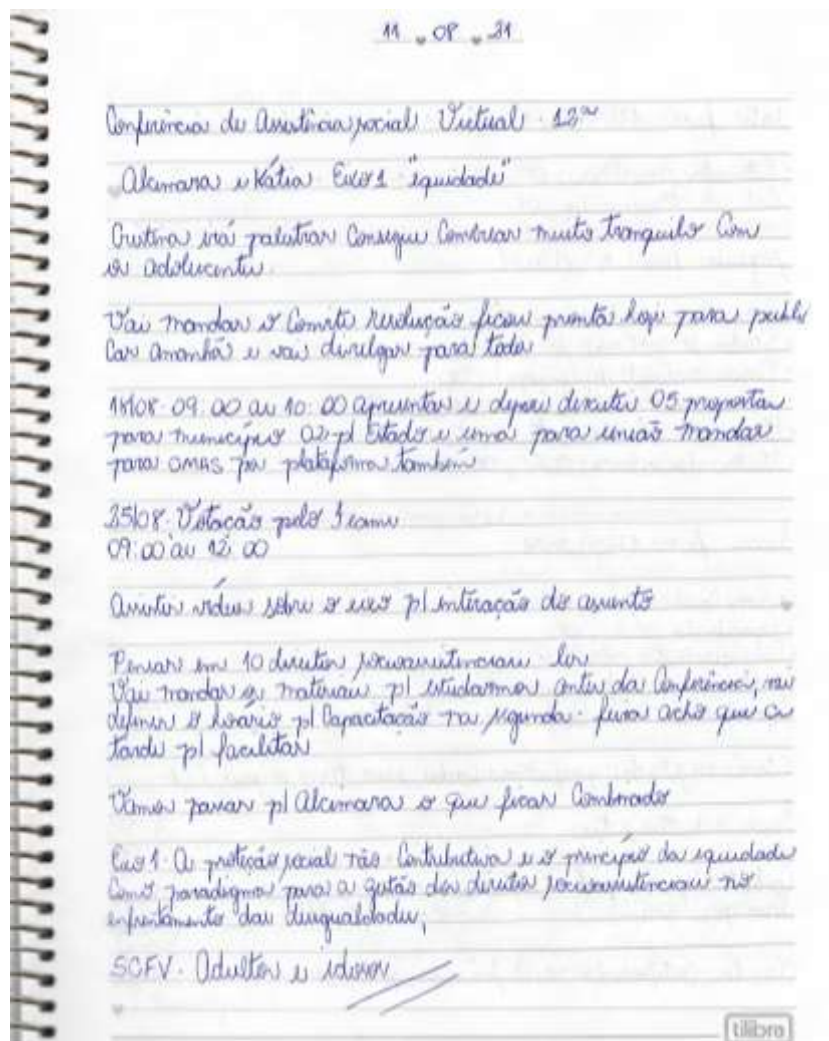 11 08 21
Conferência de Assistência social Virtual . 12ª
Alcimara e Kátia Eixo 1 "equidade"
Cristina irá palestrar Consegue Combinar muito tranquilo Com
os adolescentes.
Vai mandar o Convite resolução ficou pronta hoje para publi
Car amanhã e vai divulgar para todos
18/08. 09:00 as 10:00 apresentar e depois discutir 05 propostas
para município 02 p/ Estado e uma para união mandar
para CMAS por plataforma também
25/08. Votação pelo Teams
09:00 as 12:00
Assistir vídeos sobre o eixo p/ interação do assunto
Pensar em 10 direitos socioassistenciais ler
Vai mandar os materiais p/ estudarmos antes da Conferência, vai
definir o horário p/ Capacitação na segunda . feira acho que a
tarde p/ facilitar
Vamos passar p/ Alcimara o que ficar Combinado
Eixo 1. A proteção social não Contributiva e o princípio da equidade
Como paradigma para a gestão dos direitos socioassistenciais no
enfrentamento das desigualdades,
SCFV. Adultos e idosos
tilibra